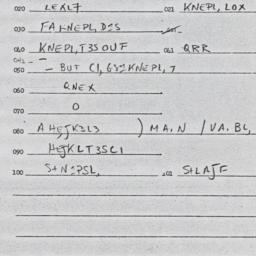 020 LEXL7 021 KNEPL, LOX
030 FAKNEPL, D2S
040 KNEPL, T3SOUF 041 QRR
042 -
050 - BUT C1, KNEPL, 7
060 QNEX
070 O
080 A HEJK3L3 ) MA.N / VA. BL,
090 HEJKLT3SC1
100 S+N 101 S+LAJF